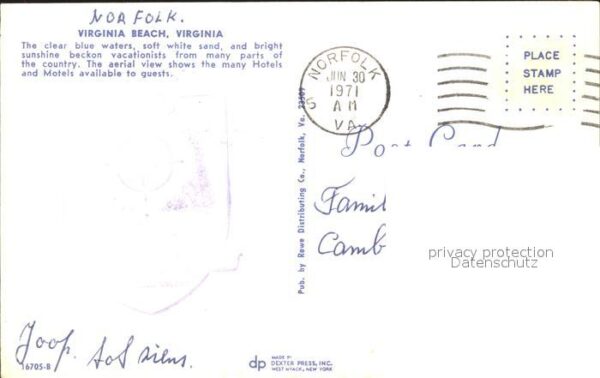 NORFOLK.
VIRGINIA BEACH, VIRGINIA
The clear blue waters, soft white sand, and bright
sunshine beckon vacationists from many parts of
the country. The aerial view shows the many Hotels
and Motels available to guests.
NORFOLK
JUN 30
1971
AM
VA
PLACE
STAMP
HERE
Post Card
Pub. by Rowe Distributing Co., Norfolk, Va. 23509
Famil
Camb
privacy protection
Datenschutz
Joop.
16705-B
dp
MADE BY
DEXTER PRESS, INC.
WEST NYACK, NEW YORK